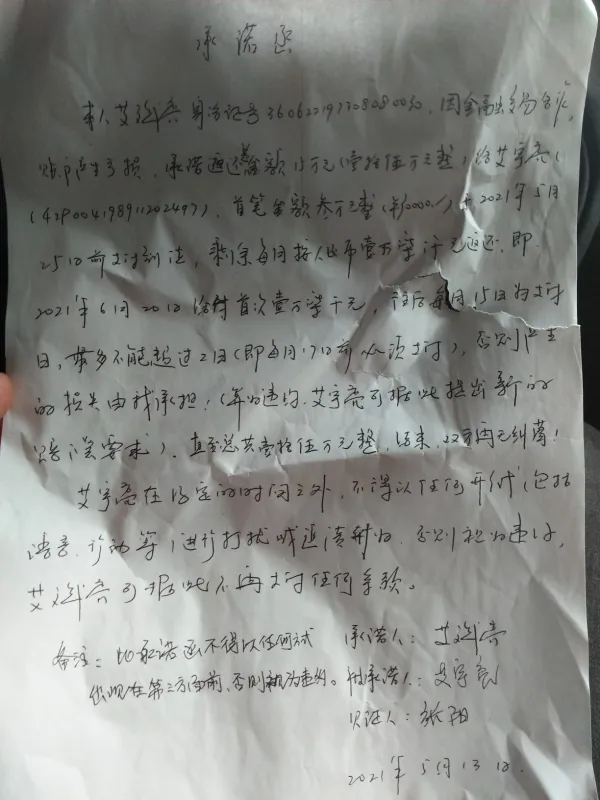 承诺函
本人艾 身份证号 因金融交易合作,
账户产生亏损,承诺返还金额15万元(壹拾伍万元整)给艾宇亮(
(429004198911202497),首笔金额叁万元整(¥30000.)于2021年5月
25日前支付到位,剩余每月按人民币壹万柒仟元返还,即
2021年6月20日给付首次壹万柒千元,往后每月15日为支付
日,最多不能超过2日(即每月17日前必须支付),否则产生
的损失由我承担!(算为违约,艾宇亮可据此提出新的
赔偿要求),直至总共壹拾伍万元整,结束,双方再无纠葛!
艾宇亮在约定的时间之外,不得以任何形式(包括
语音、行动等)进行打扰或追债 ,否则视为违约,
艾 可据此不再支付任何余款。
备注:此承诺函不得以任何方式 承诺人:艾
出现在第三方面前,否则视为违约。 被承诺人:艾宇亮
见证人:张阳
2021年5月13日.